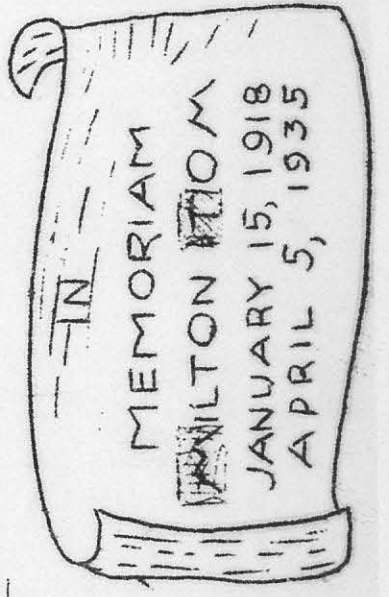 IN
MEMORIAM
MILTON
JANUARY 15, 1918
APRIL 5, 1935